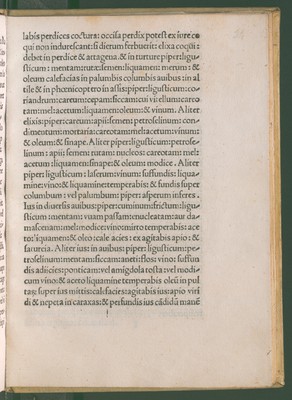 labis perdices coctura: occisa perdix potest ex iure co
qui non indurescant: si dierum ferbuerit: elixa coqui:
debet in perdice & attagena. & in turture piper: ligu
sticum: mentam: rutæ semen: liquamen: merum: & 
oleum calefacias in palumbis columbis auibus: in al
tile & in phœnicoptero in assis: piper: ligusticum: co
riandrum: careum: cepam: siccam: oui uitellum: careo
tam: mel: acetum: liquamen: oleum: & uinum. Aliter
elixis: piper: careum: apii: semen: petroselinum: con
dimentum: mortaria: careotam: mel: acetum: uinum:
& oleum: & sinape. Aliter piper: ligusticum: petrose
linum: apii: semen: rutam: nucleos: careotam: mel:
acetum: liquamen: sinape: & oleum: modice. Aliter
piper: ligusticum: laser: uinum: suffundis: liqua-
mine: uino: & liquamine: temperabis: & fundis super
columbum: uel palumbum: piper: aspersum inferes.
Ius in diuersis auibus: piper: cuminum: frictum: ligu-
sticum: mentam: uuam passam: enucleatam: aut da-
mascenam: mel: modice: uino: mirto temperabis: ace
to: liquamen: & oleo: cale acies: & agitabis apio: &
satureia. Aliter ius: in auibus: piper: ligusticum: pe-
troselinum: mentam: siccam: aneti: flos: uino: suffun
dis adiicies: ponticam: uel amigdola tosta: uel modi-
cum uino: & aceto liquamine temperabis oleũ in pul
tas: super ius mittis: calefacies: agitabis ius: apio uiri
di & nepeta in caraxas: & perfundis ius cãdidũ mane